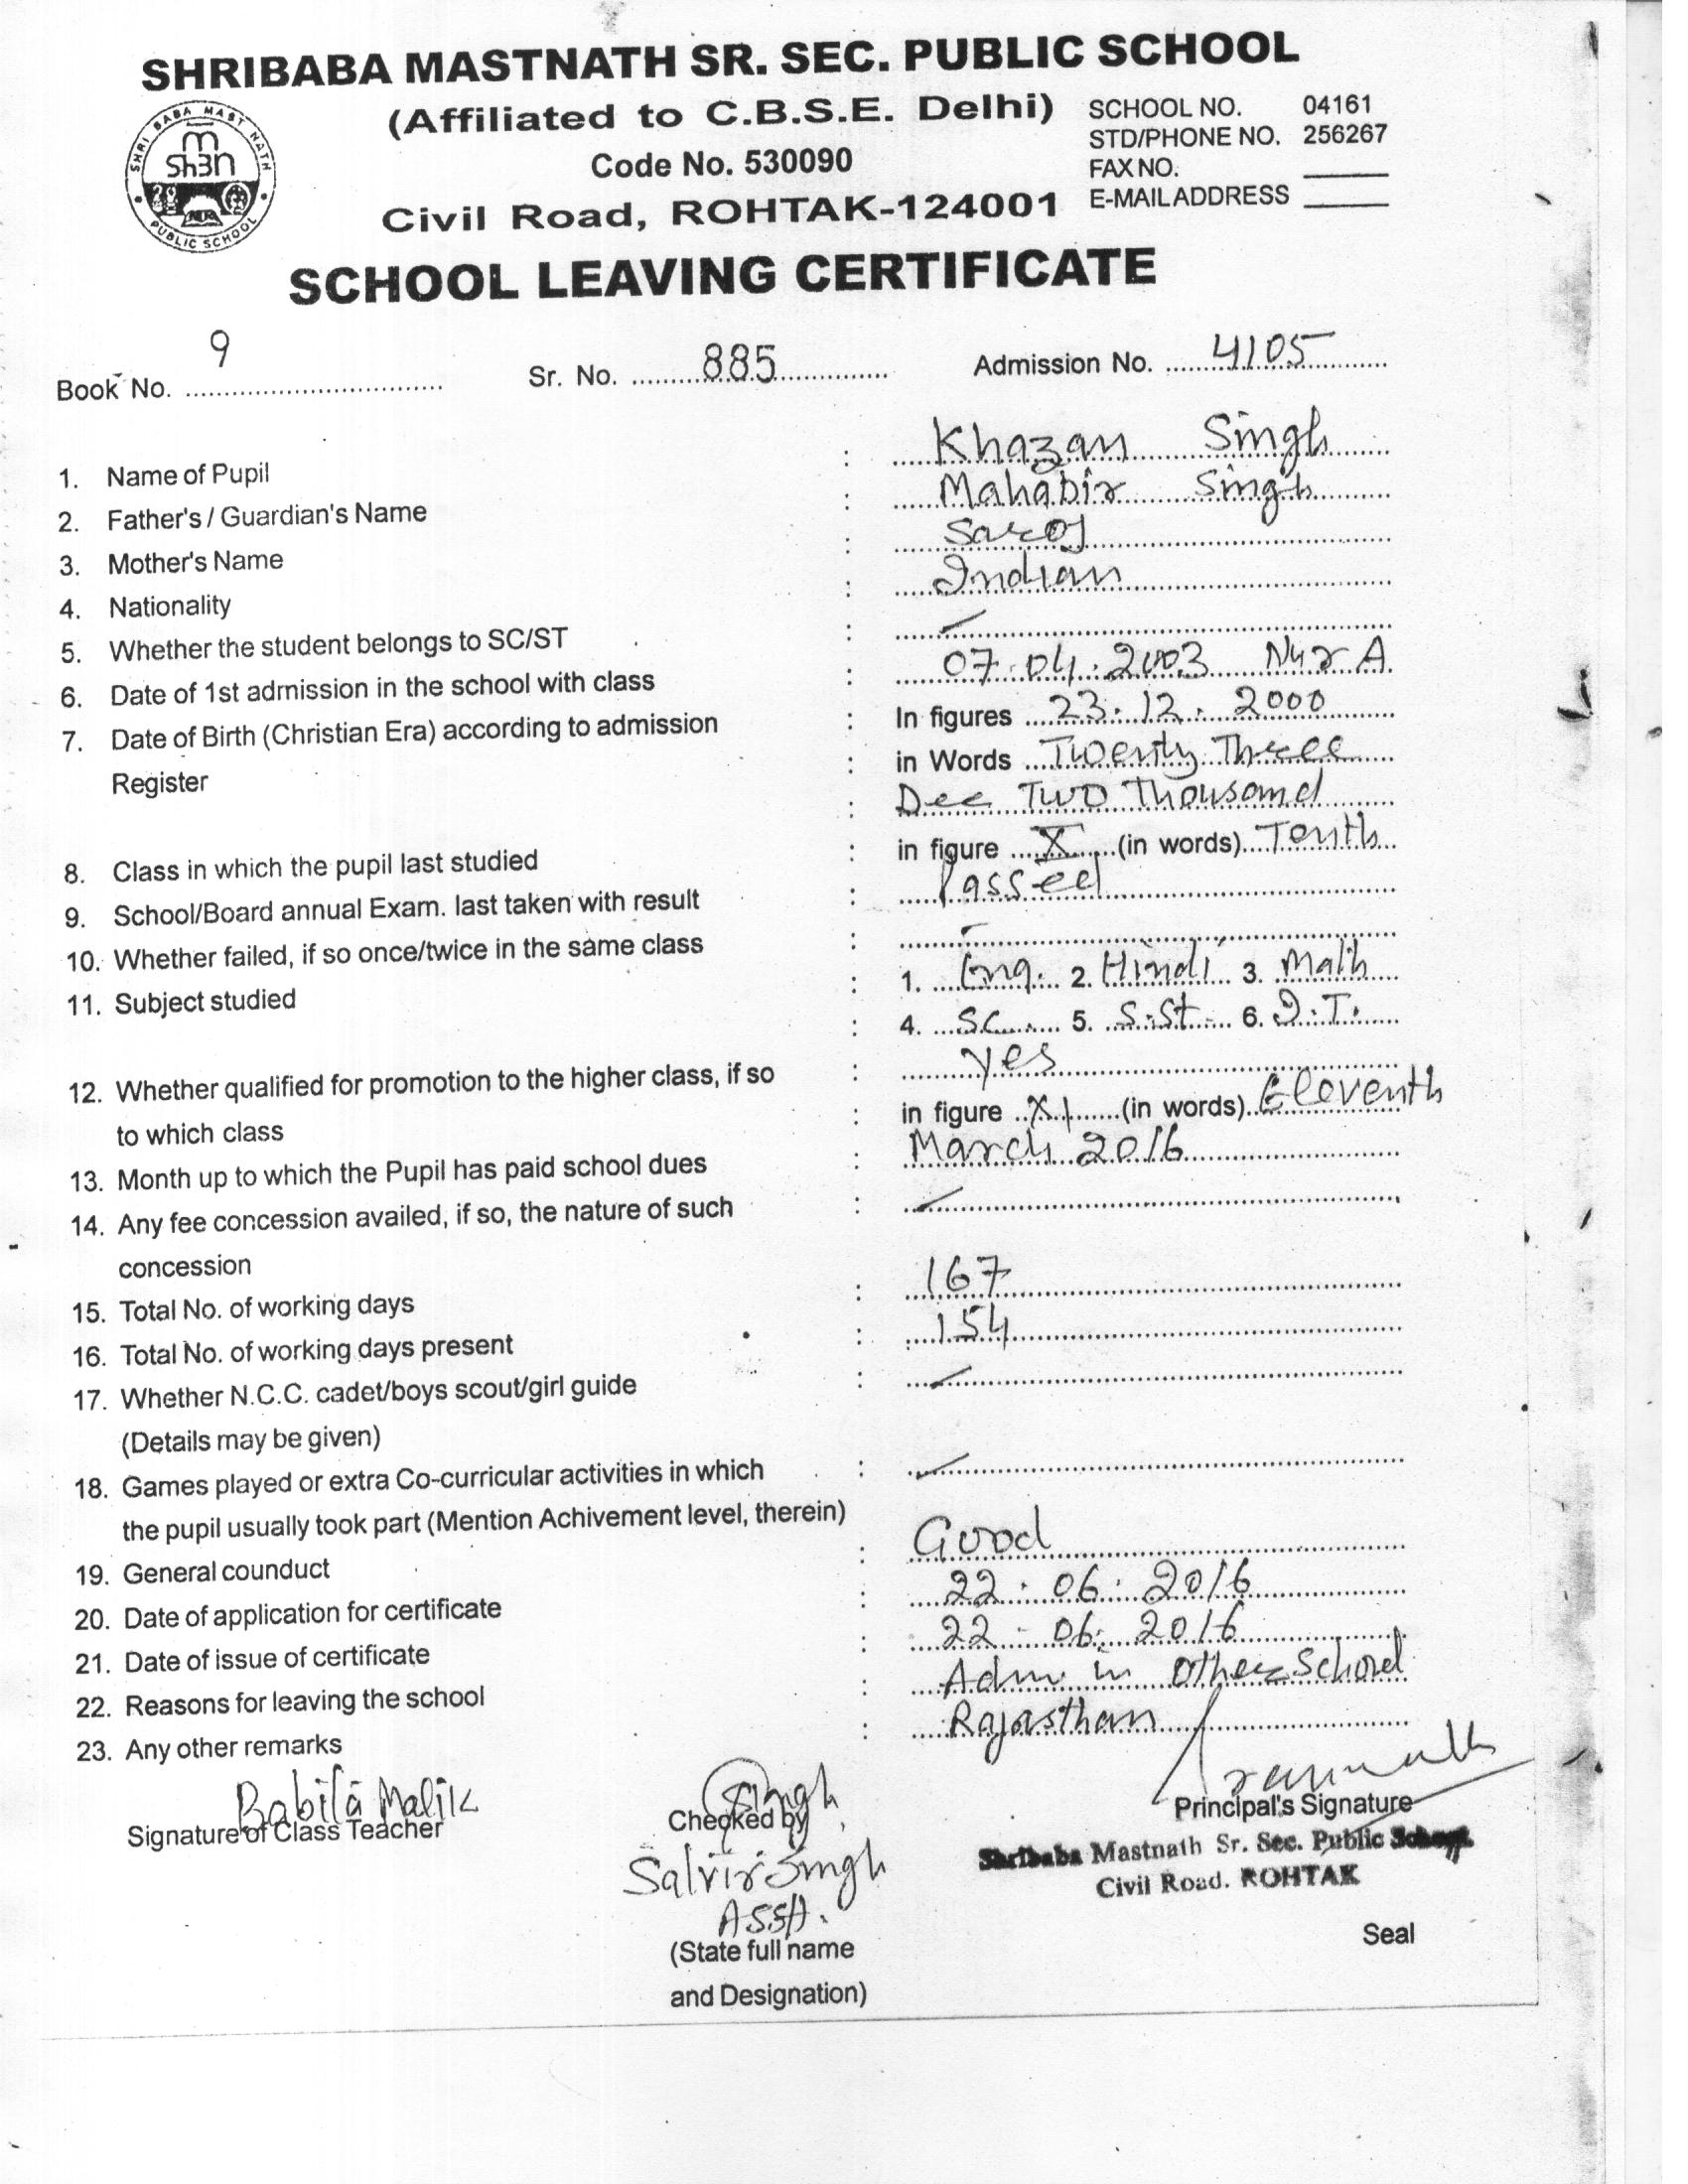 SHRIBABA MASTNATH SR. SEC. PUBLIC SCHOOL
(Affiliated to C.B.S.E. Delhi)
Code No. 530090
Civil Road, ROHTAK-124001
SCHOOL NO. 04161
STD/PHONE NO. 256267
FAX NO.
E-MAIL ADDRESS
SHRI BABA MAST NATH
PUBLIC SCHOOL
SCHOOL LEAVING CERTIFICATE
Book No. 9 Sr. No. 885 Admission No. 4105
1. Name of Pupil : Khazan Singh
2. Father's / Guardian's Name : Mahabir Singh
3. Mother's Name : Saroj
4. Nationality : Indian
5. Whether the student belongs to SC/ST :
6. Date of 1st admission in the school with class : 07.04.2003 Nur A
7. Date of Birth (Christian Era) according to admission : In figures 23.12.2000
Register : in Words Twenty Three
: Dec Two Thousand
8. Class in which the pupil last studied : in figure X (in words) Tenth
9. School/Board annual Exam. last taken with result : Passed
10. Whether failed, if so once/twice in the same class : -
11. Subject studied : 1. Eng. 2. Hindi 3. Math
: 4. Sc. 5. S.St. 6. I.T.
12. Whether qualified for promotion to the higher class, if so : yes
to which class : in figure XI (in words) Eleventh
13. Month up to which the Pupil has paid school dues : March 2016
14. Any fee concession availed, if so, the nature of such :
concession
15. Total No. of working days : 167
16. Total No. of working days present : 154
17. Whether N.C.C. cadet/boys scout/girl guide :
(Details may be given)
18. Games played or extra Co-curricular activities in which :
the pupil usually took part (Mention Achivement level, therein)
19. General counduct : Good
20. Date of application for certificate : 22.06.2016
21. Date of issue of certificate : 22-06.2016
22. Reasons for leaving the school : Adm in Other School
23. Any other remarks : Rajasthan
Babita Malik
Signature of Class Teacher
Singh
Checked by
Principal's Signature
Shribaba Mastnath Sr. Sec. Public School
Civil Road. ROHTAK
Singh
Seal
(State full name
and Designation)